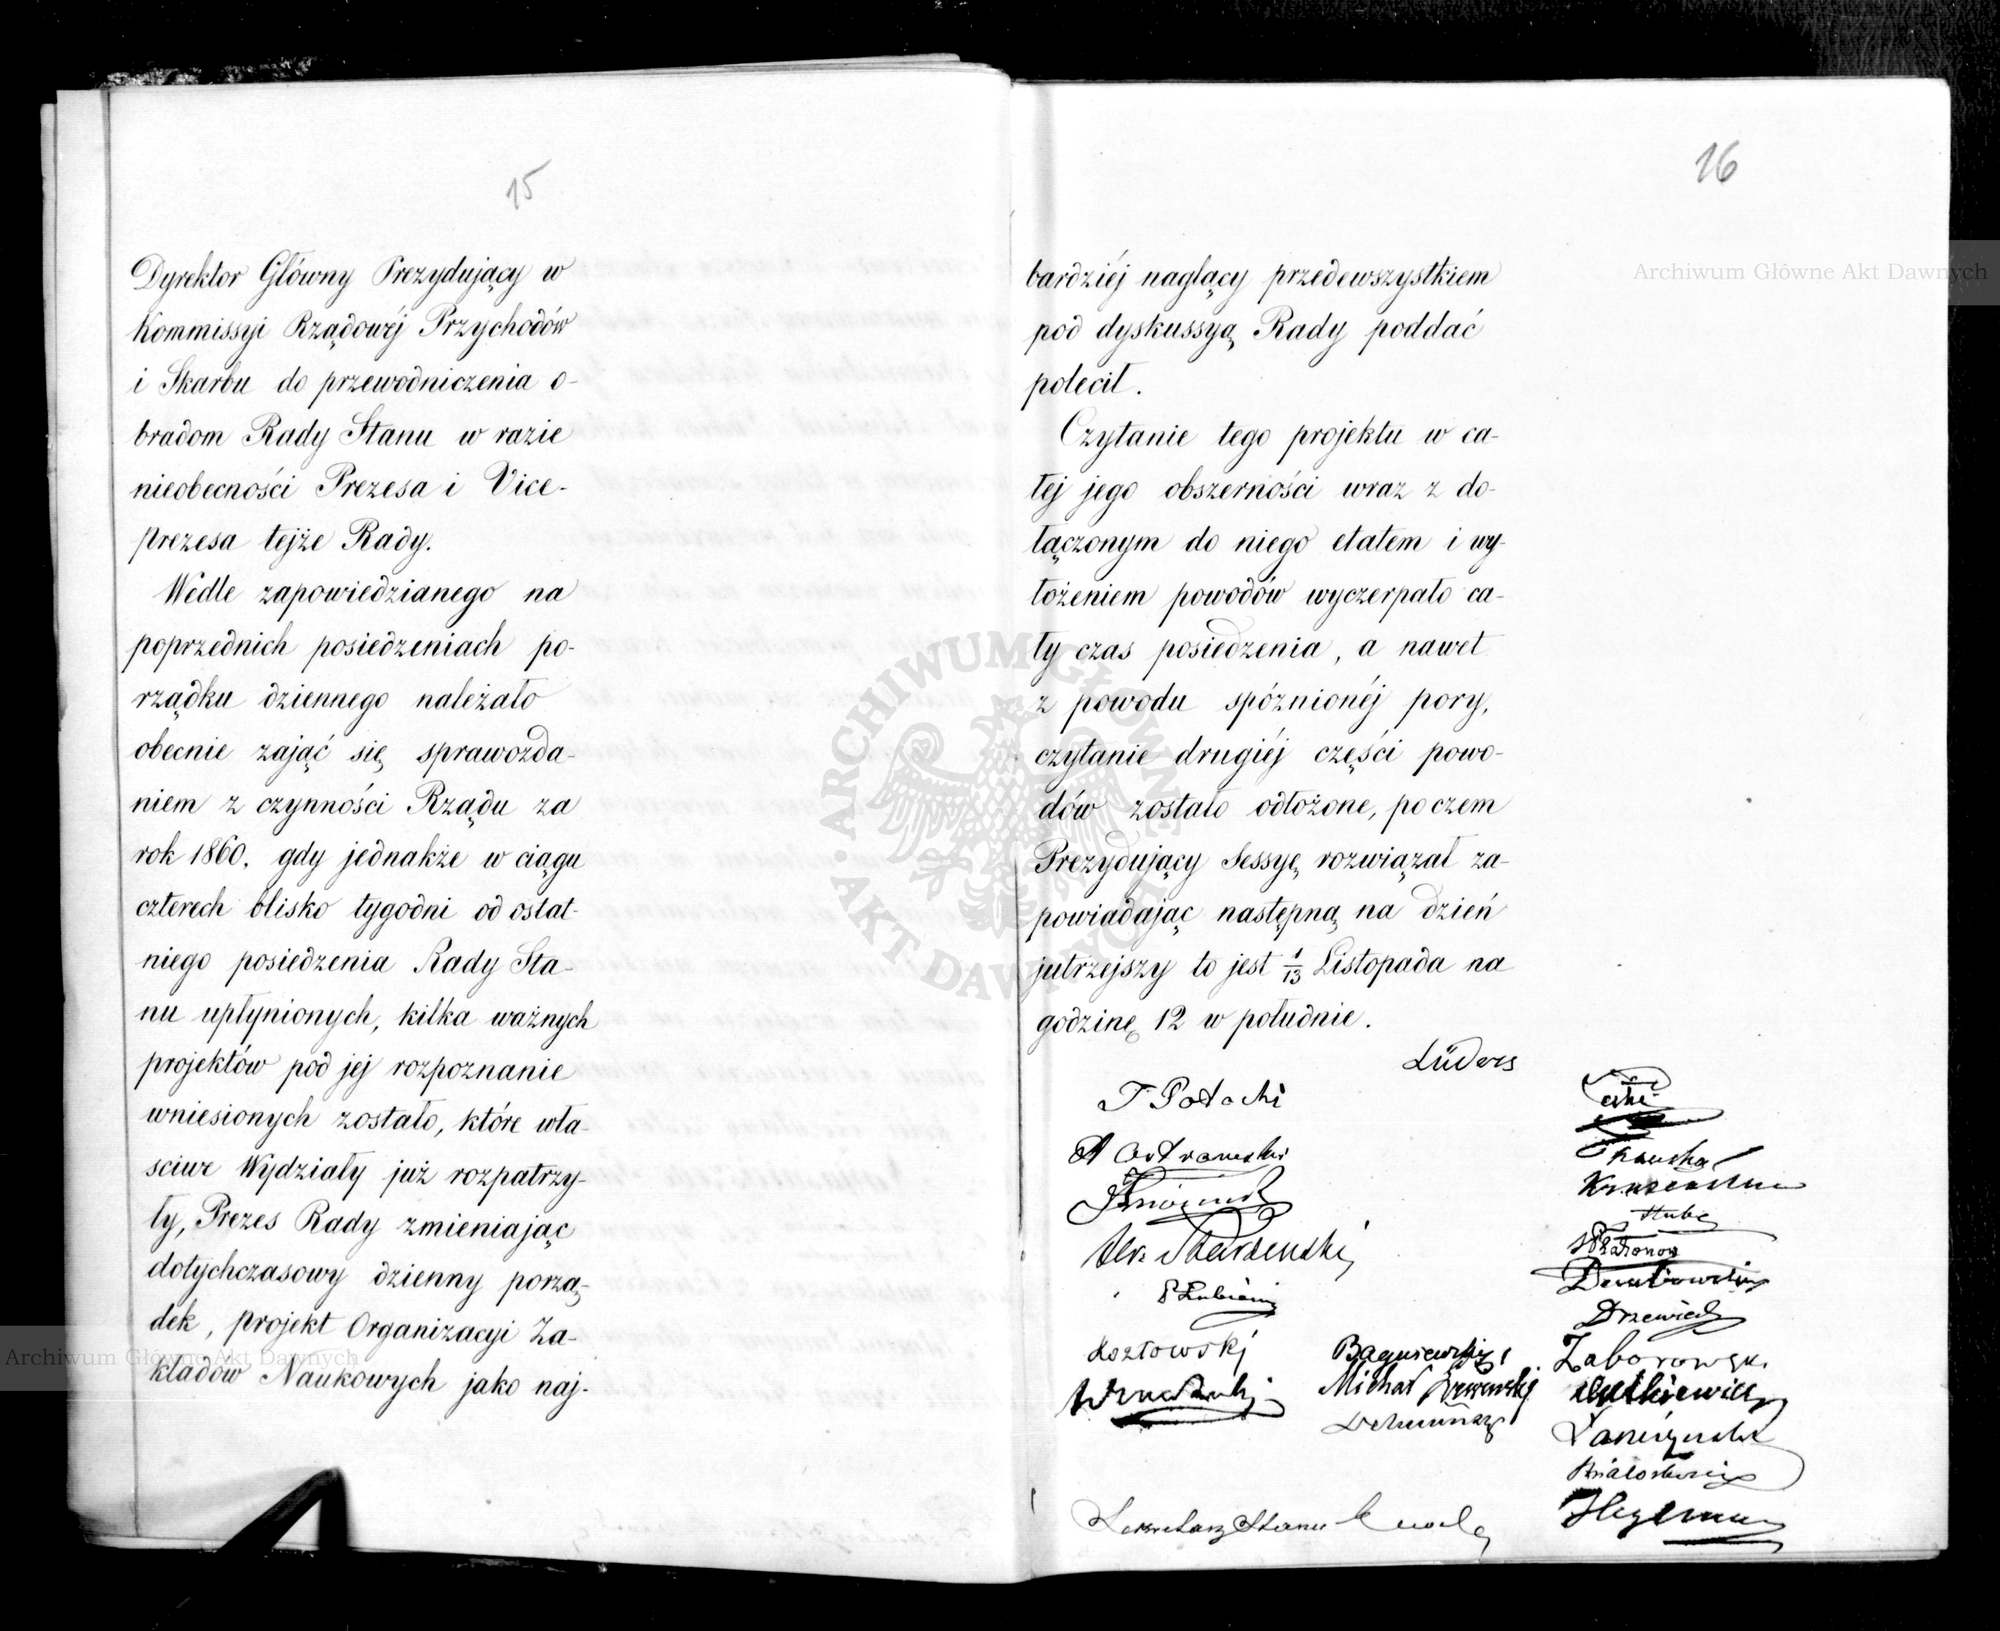 15
Dyrektor Główny Prezydujący w
Kommissyi Rządowéj Przychodów
i Skarbu do przewodniczenia o-
bradom Rady Stanu w razie
nieobecności Prezesa i Vice-
prezesa tejże Rady.
Wedle zapowiedzianego na
poprzednich posiedzeniach po-
rządku dziennego należało
obecnie zająć się sprawozda-
niem z czynności Rządu za
rok 1860, gdy jednakże w ciągu
czterech blisko tygodni od ostat-
niego posiedzenia Rady Sta-
nu upłynionych, kilka ważnych
projektów pod jej rozpoznanie
wniesionych zostało, które wła-
sciwe Wydziały już rozpatrzy-
ły, Prezes Rady zmieniając
dotychczasowy dzienny porzą-
dek, projekt Organizacyi Za-
kładów Naukowych jako naj-
16
bardziéj naglący przedewszystkiem
pod dyskussyą Rady poddać
polecił.
Czytanie tego projektu w ca-
łej jego obszerności wraz z do-
łączonym do niego etatem i wy-
łożeniem powodów wyczerpało ca-
ły czas posiedzenia, a nawet
z powodu spóźnionéj pory,
czytanie drugiéj części powo-
dów zostało odłożone, poczem
Prezydujący Sessyę rozwiązał za-
powiadając następną na dzień
jutrzejszy to jest 1/13 Listopada na
godzinę 12 w południe.
Lüders
T Potocki
A Ostrowski
P Łubień
Kozłowski
Bagniewski
Michał
Hube
Dembowski
Drzewiecki
Zaborowski
Hegeman
Sekretarz Stanu
Archiwum Główne Akt Dawnych
Archiwum Główne Akt Dawnych
ARCHIWUM GŁÓWNE AKT DAWNYCH